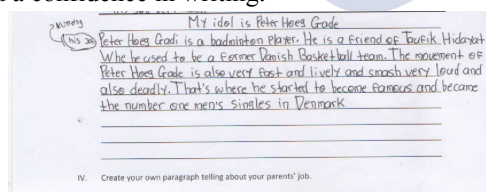 t a confidence in writing.
My idol is Peter Hoeg Grade
his job
Peter Hoeg Gradi is a badminton player. He is a Friend of Taufik Hidayat
Whe be used to be a Former Danish Basketball team. The movement of
Peter Hoeg Gade is also very fast and lively and smash very loud and
also deadly. That's where he started to become famous and became
the number one men's singles in Denmark
IV. Create your own paragraph telling about your parents' job.